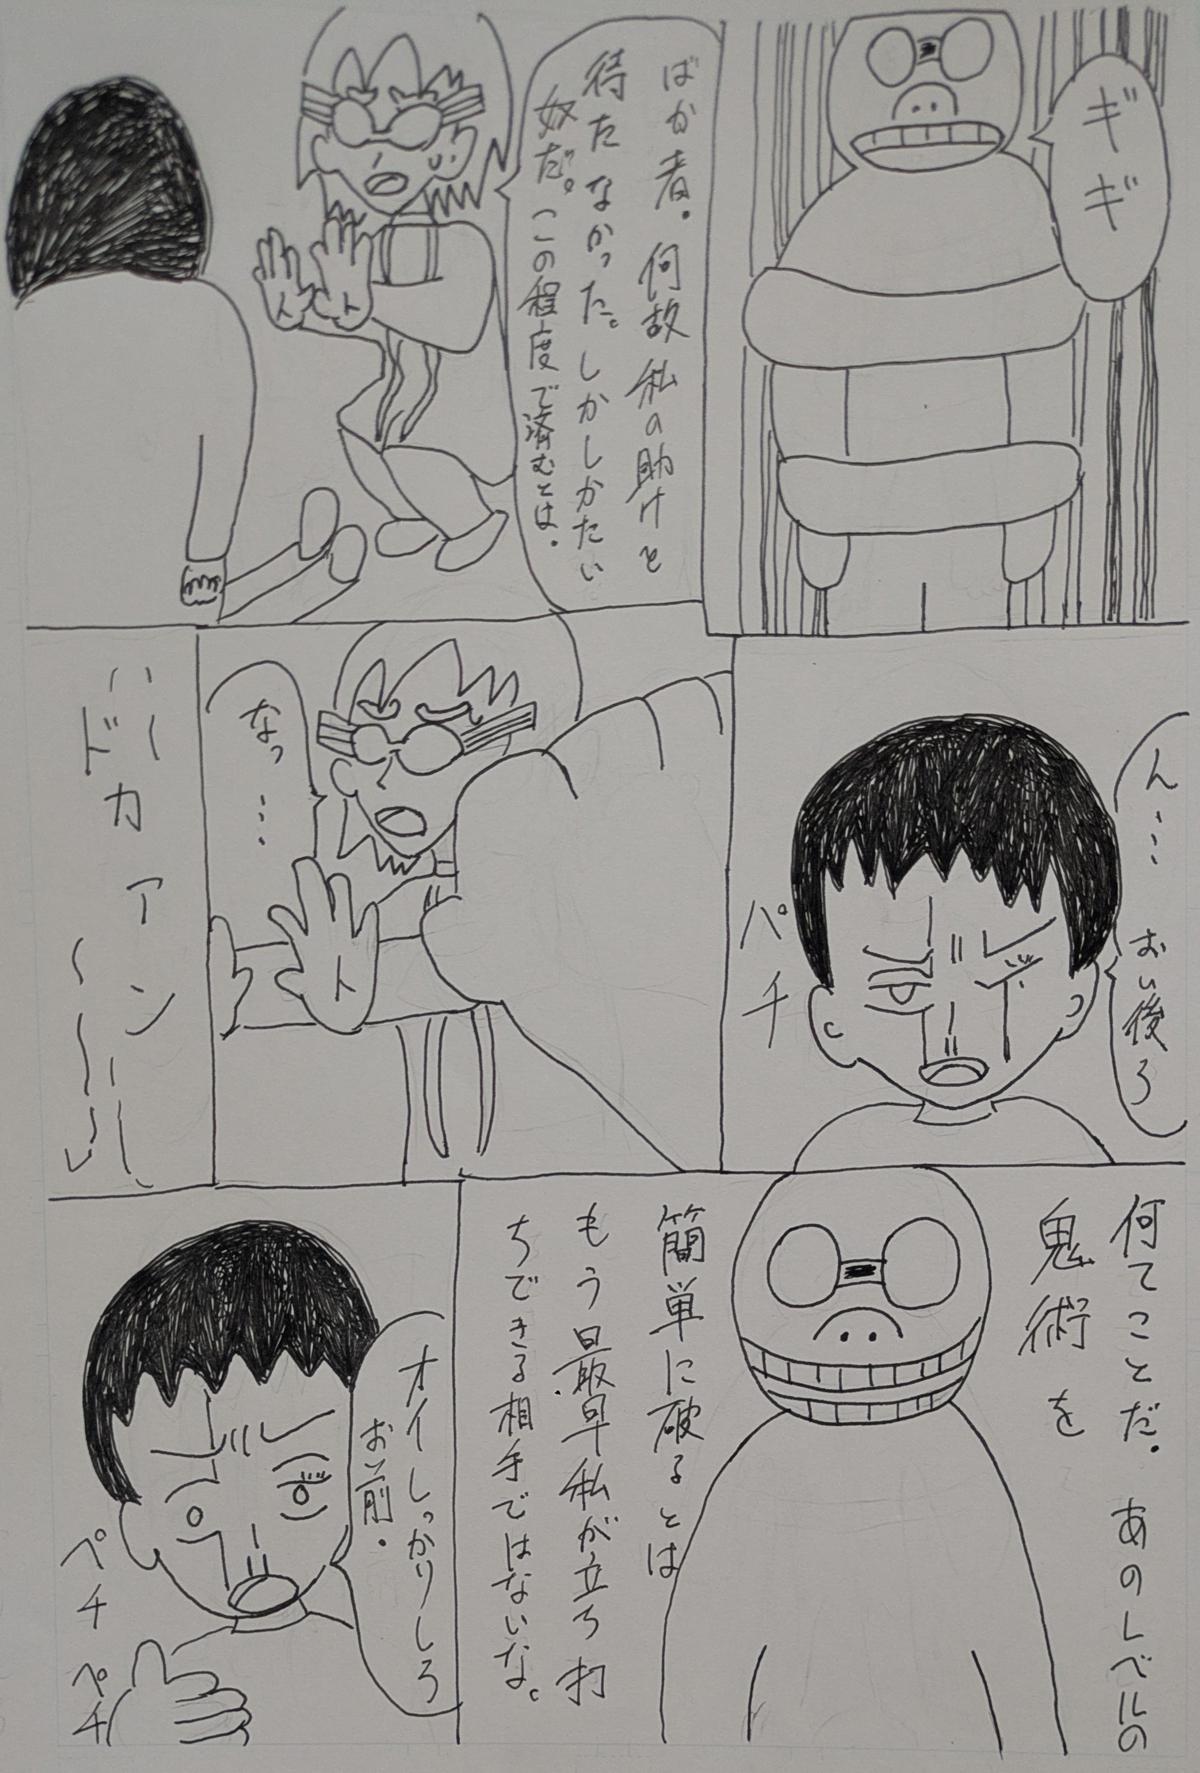 ギギ
ばか者。何故私の助けを
待たなかった。しかしかたい
奴だ。この程度で済むとは。
ん…おい後ろ
パチ
なっ…
ドカアン
何てことだ。あのレベルの
鬼術を
簡単に破るとは
もう最早私が立ち打
ちできる相手ではないな。
オイしっかりしろ
お前。
ペチペチ